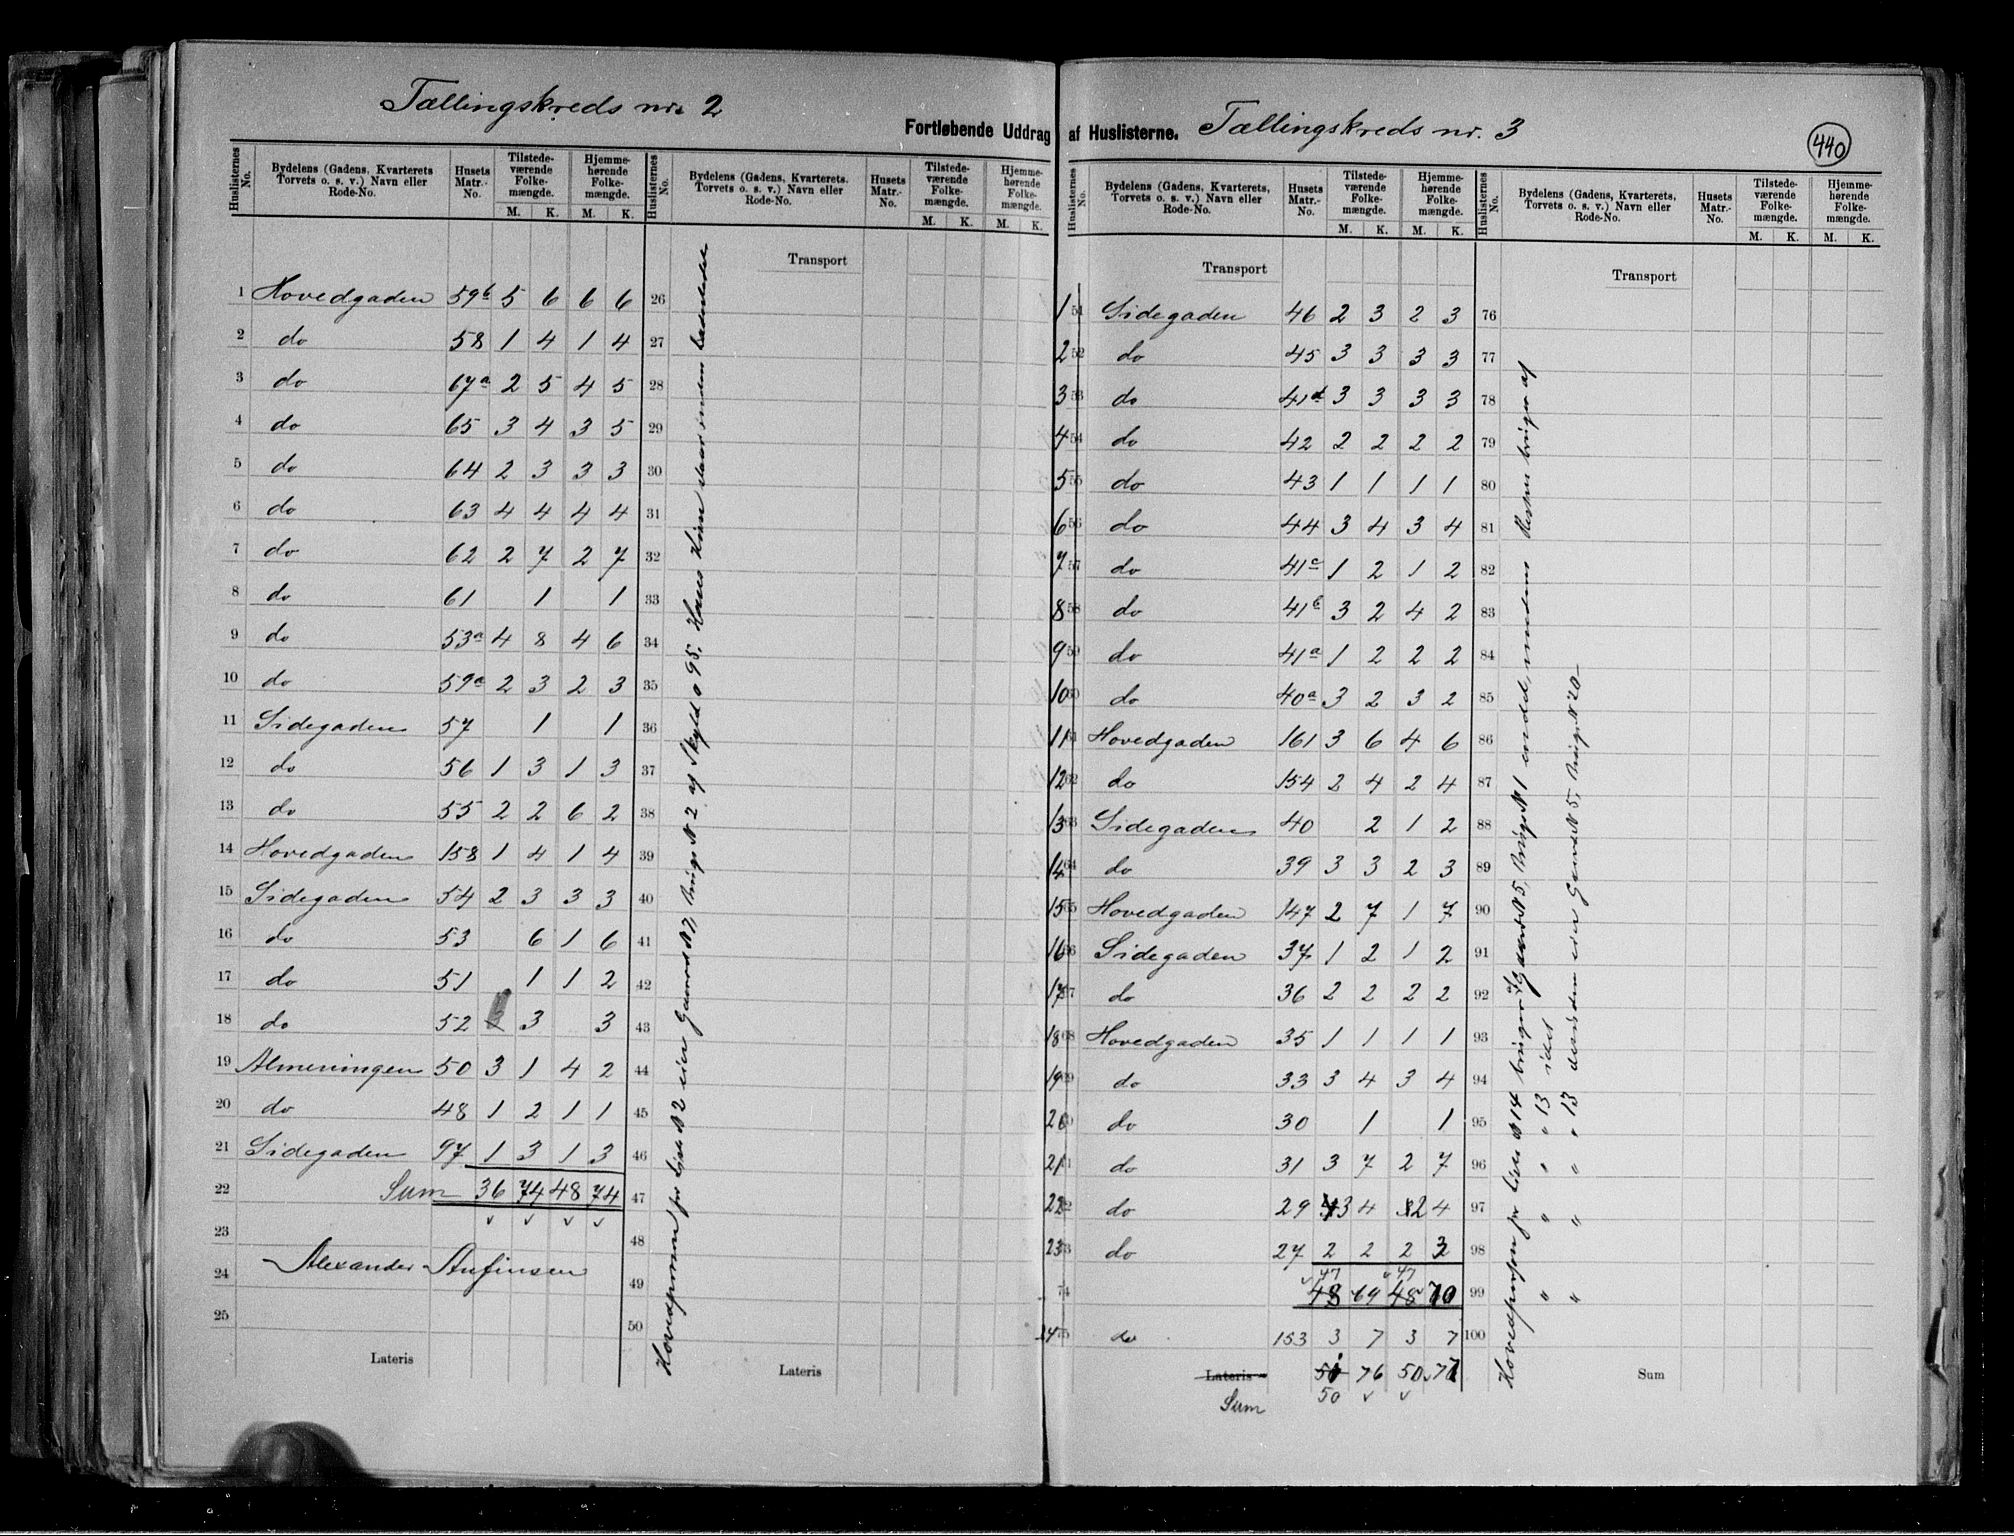 Tællingskreds nr. 2
Fortløbende Uddrag af Huslisterne.
Tællingskreds nr. 3
440
Huslisternes No. | Bydelens (Gadens, Kvarterets Torvets o. s. v.) Navn eller Rode-No. | Husets Matr.-No. | Tilstedeværende Folkemængde. M. K. | Hjemmehørende Folkemængde. M. K.
1 Hovedgaden 59b 5 6 6 6
2 do 58 1 4 1 4
3 do 67a 2 5 4 5
4 do 65 3 4 3 5
5 do 64 2 3 3 3
6 do 63 4 4 4 4
7 do 62 2 7 2 7
8 do 61 1 1
9 do 53a 4 8 4 6
10 do 59a 2 3 2 3
11 Sidegaden 57 1 1
12 do 56 1 3 1 3
13 do 55 2 2 6 2
14 Hovedgaden 158 1 4 1 4
15 Sidegaden 54 2 3 3 3
16 do 53 6 1 6
17 do 51 1 1 2
18 do 52 3 3
19 Almeningen 50 3 1 4 2
20 do 48 1 2 1 1
21 Sidegaden 97 1 3 1 3
22 Sum 36 74 48 74
23
24 Alexander Anfinsen
25
Lateris
Huslisternes No. | Bydelens (Gadens, Kvarterets Torvets o. s. v.) Navn eller Rode-No. | Husets Matr.-No. | Tilstedeværende Folkemængde. M. K. | Hjemmehørende Folkemængde. M. K.
Transport
26
27
28
29
30
31
32
33
34
35
36
37
38
39
40
41
42
43
44
45
46
47
48
49
50
Lateris
Hovedperson for Liste N 2 eier Gaards N 7, Brugs N 2 af Skyld 0 95.
Huslisternes No. | Bydelens (Gadens, Kvarterets, Torvets o. s. v.) Navn eller Rode-No. | Husets Matr.-No. | Tilstedeværende Folkemængde. M. K. | Hjemmehørende Folkemængde. M. K.
Transport
1 51 Sidegaden 46 2 3 2 3
2 52 do 45 3 3 3 3
3 53 do 41d 3 3 3 3
4 54 do 42 2 2 2 2
5 55 do 43 1 1 1 1
6 56 do 44 3 4 3 4
7 57 do 41c 1 2 1 2
8 58 do 41b 3 2 4 2
9 59 do 41a 1 2 2 2
10 60 do 40a 3 2 3 2
11 61 Hovedgaden 161 3 6 4 6
12 62 do 154 2 4 2 4
13 63 Sidegaden 40 2 1 2
14 64 do 39 3 3 2 3
15 65 Hovedgaden 147 2 7 1 7
16 66 Sidegaden 37 1 2 1 2
17 67 do 36 2 2 2 2
18 68 Hovedgaden 35 1 1 1 1
19 69 do 33 3 4 3 4
20 70 do 30 1 1
21 71 do 31 3 7 2 7
22 72 do 29 3 4 2 4
23 73 do 27 2 2 2 3
47 47
74 48 69 48 70
24 75 do 153 3 7 3 7
Lateris 51 76 50 77
Sum 50
Huslisternes No. | Bydelens (Gadens, Kvarterets, Torvets o. s. v.) Navn eller Rode-No. | Husets Matr.-No. | Tilstedeværende Folkemængde. M. K. | Hjemmehørende Folkemængde. M. K.
Transport
76
77
78
79
80
81
82
83
84
85
86
87
88
89
90
91
92
93
94
95
96
97
98
99
100
Sum
Hovedperson for Liste N 14 bruger af Gaards N 5, Brugs N 1 medens Resten bruges af
" " " 13
" " " 13 eier Gaards N 5, Brugs N 20